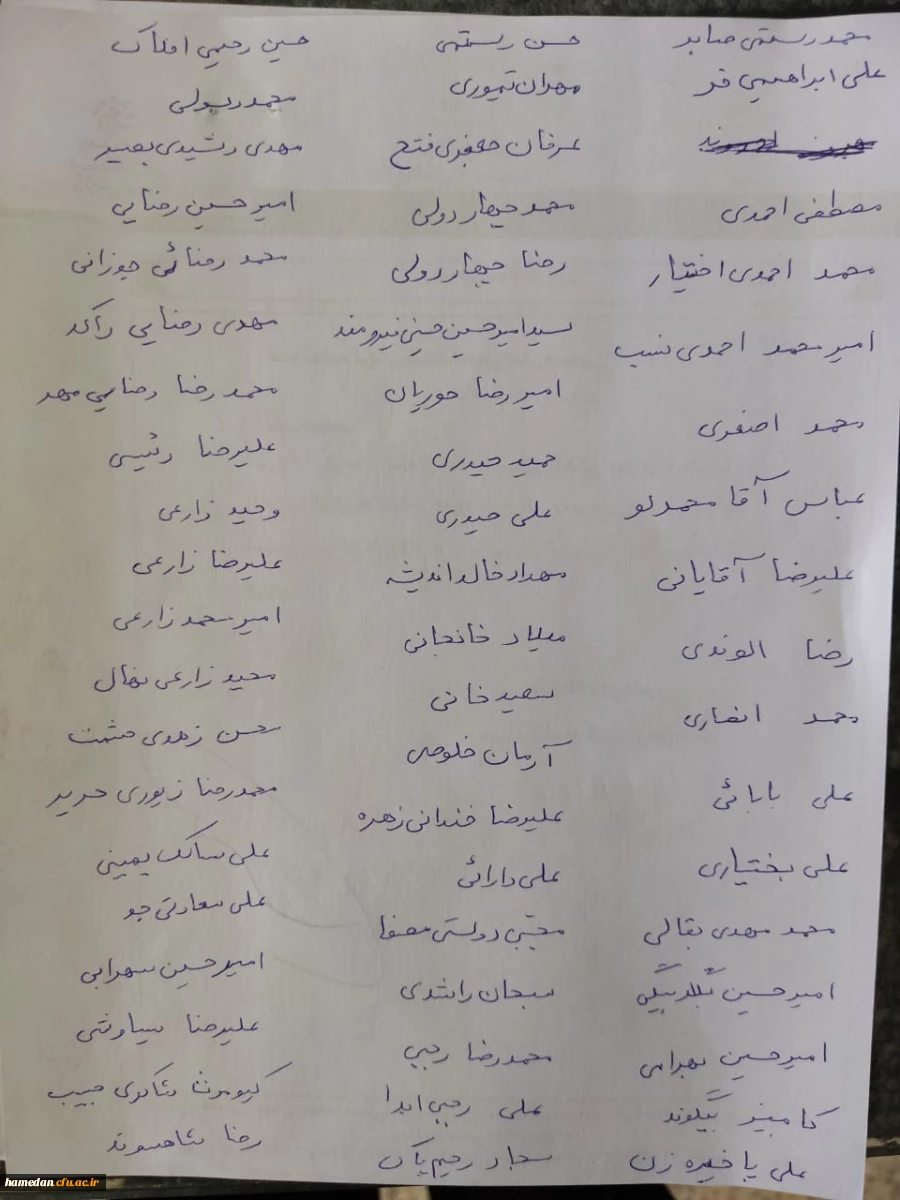 محمد رستمی صابر
علی ابراهیمی فر
مصطفی احمدی
محمد احمدی افتیار
امیر محمد احمدی نسب
محمد اصغری
عباس آقا محمدلو
علیرضا آقایانی
رضا الوندی
محمد انصاری
علی بابائی
علی بختیاری
محمد مهدی بقالی
امیرحسین بگلربیگی
امیرحسین بهرامی
کامبیز بیگلوند
علی پاخیره زن
حسن رستمی
مهران تیموری
عرفان جعفری فتح
محمد چهاردولی
رضا چهاردولی
سید امیرحسین حسینی نیرومند
امیر رضا حوریان
حمید حیدری
علی حیدری
مهداد خالد اندیشه
میلاد خانجانی
سعید خانی
آرمان خلوصی
علیرضا خندانی زهره
علی دارائی
مجتبی دوستی مصفا
سبحان راشدی
محمدرضا رجبی
علی رجبی
سجاد رحیم پاک
حسین رحیمی افلاک
محمد رسولی
مهدی رشیدی بصیر
امیر حسین رضایی
محمد رضائی جوزانی
مهدی رضایی راکد
محمد رضا رضایی مهر
علیرضا رئیسی
وحید زارعی
علیرضا زارعی
امیرمحمد زارعی
مجید زارعی نهال
محسن زهدی حشمت
محمدرضا زیوری حریر
علی سالک یمینی
علی سعادتی جو
امیرحسین سهرابی
علیرضا سیاوشی
کیومرث شاکری حبیب
رضا شاهسوند
hamedan.cfu.ac.ir